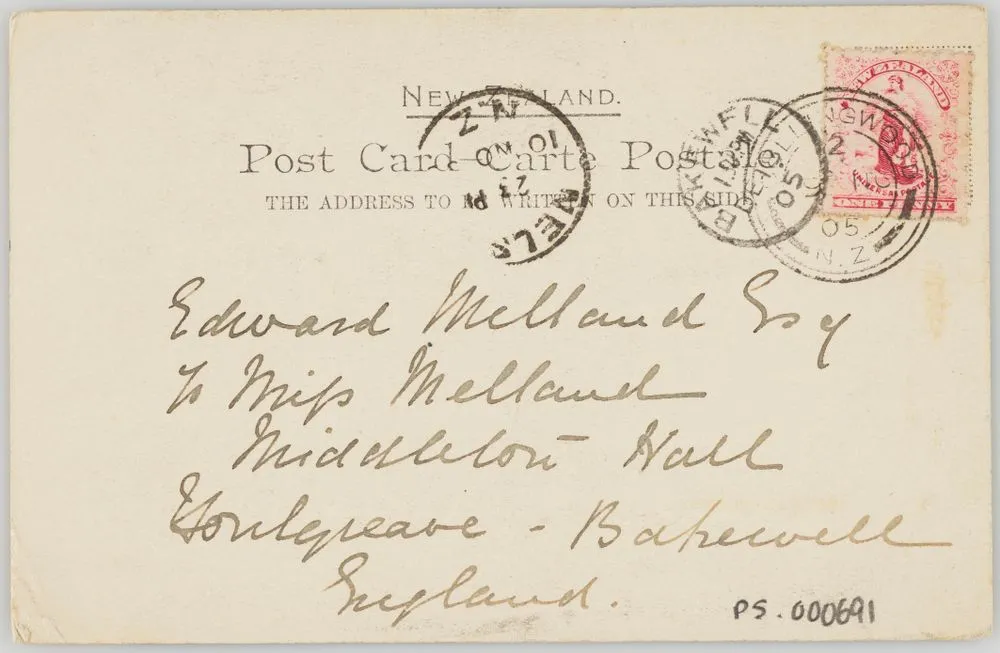 NEW ZEALAND.
Post Card–Carte Postale
THE ADDRESS TO BE WRITTEN ON THIS SIDE
NEW ZEALAND
UNIVERSAL POSTAGE
ONE PENNY
BAKEWELL
DE 19
05
05
N.Z
N.Z
10 NO
Edward Melland Esq
To Miſs Melland
Middleton Hall
Youlgreave - Bakewell
England.
PS.000691